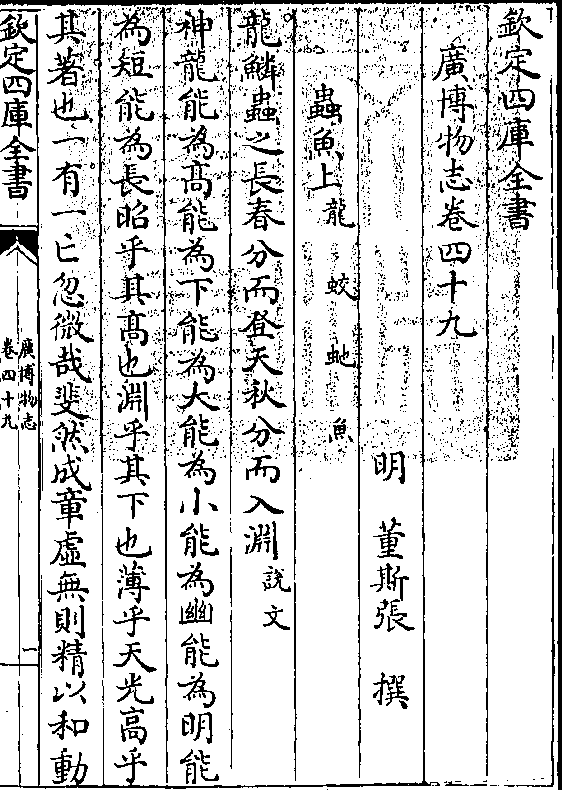 欽定四庫全書
廣博物志卷四十九
明 董斯張 撰
蟲魚上 龍 蛟 虵 魚
龍鱗蟲之長春分而登天秋分而入淵 說文
神龍能為髙能為下能為大能為小能為幽能為明能
為短能為長昭乎其髙也淵乎其下也薄乎天光高乎
其著也一有一亡忽微哉斐然成章虛無則精以和動
欽定四庫全書
廣博物志
卷四十九
一